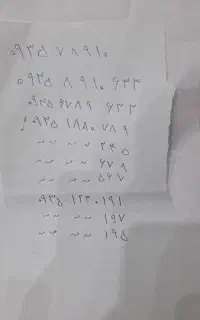 ۰۹۳۵ ۷ ۸۹۱۰
۰۹۳۵ ۸ ۹۱۰ ۶۳۳
۰۹۳۵ ۶۷۸۹ ۶۳۳
۰۹۳۵ ۱۸۸۰ ۷۸۹
〃 〃 〃 ۳۴۵
〃 〃 〃 ۶۷۹
〃 〃 〃 ۵۶۷
۰۹۳۵ ۱۲۳۰ ۱۹۱
〃 〃 〃 ۱۹۷
〃 〃 〃 ۱۹۵